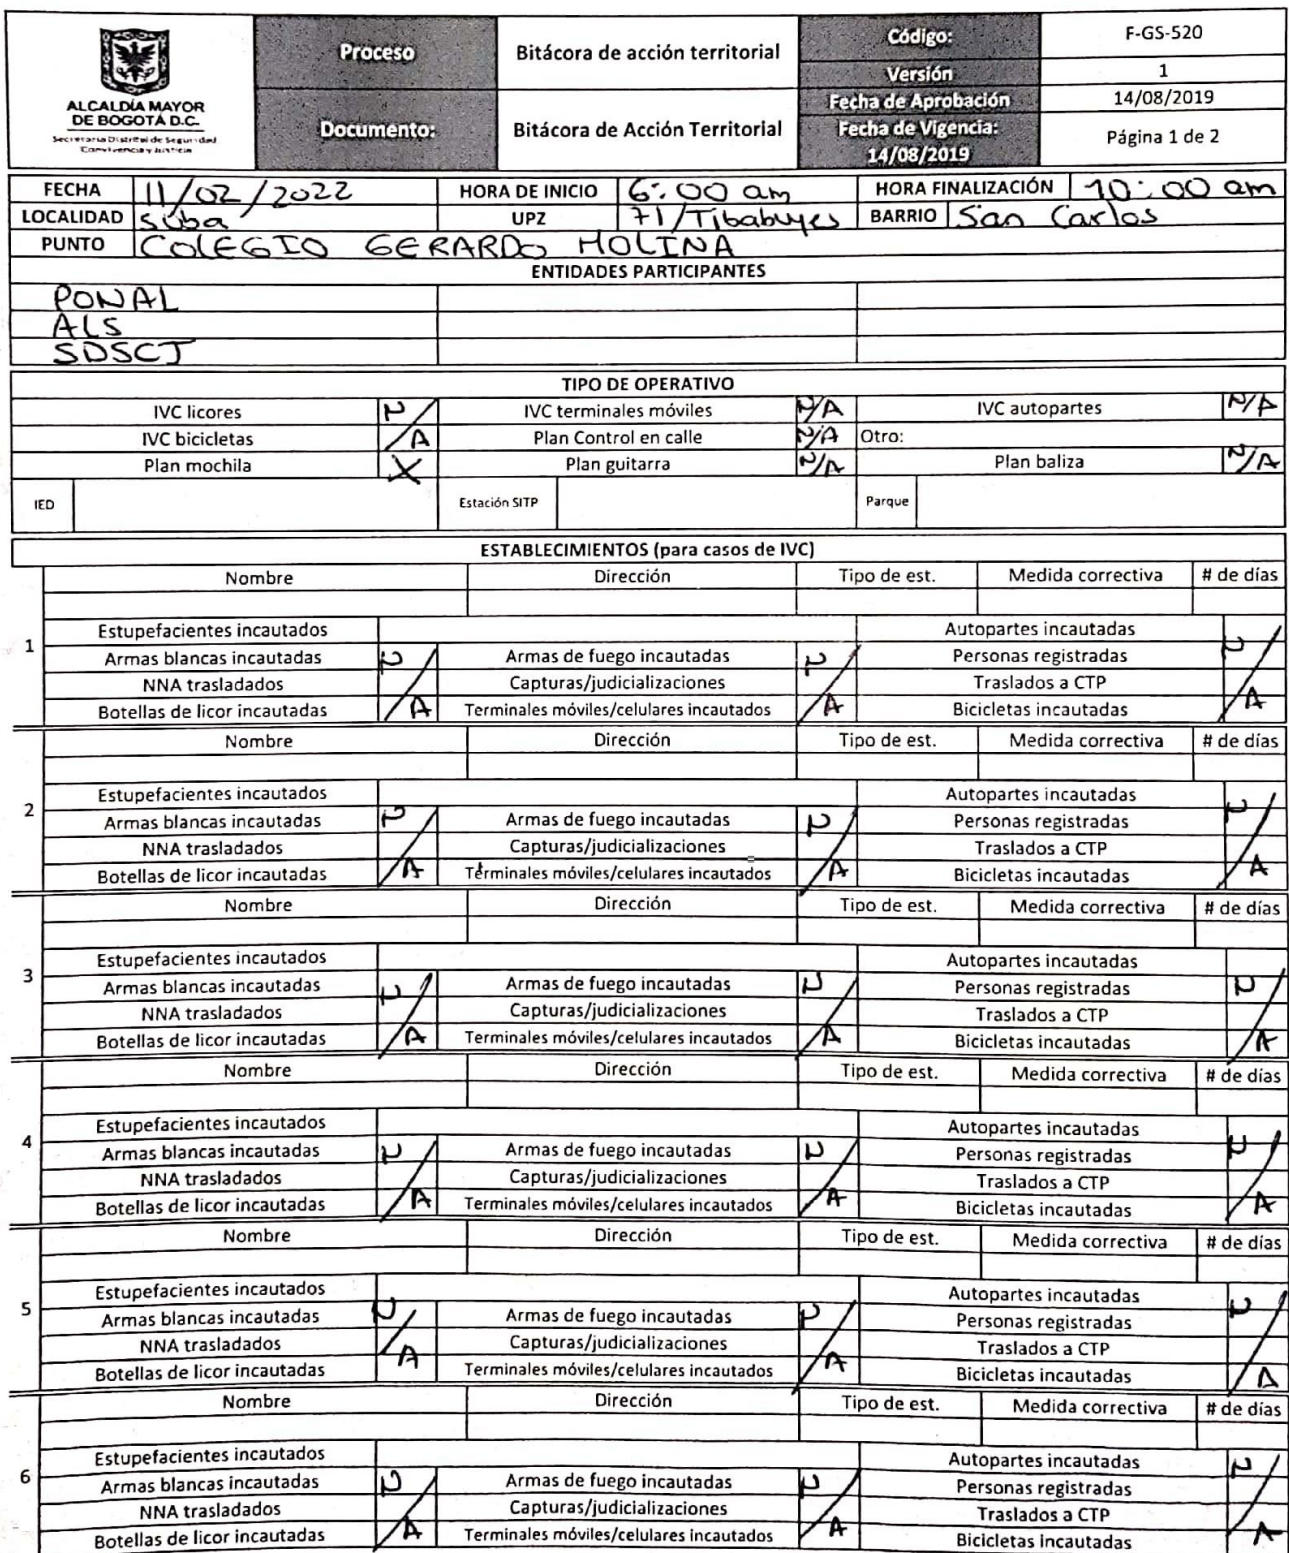 ALCALDÍA MAYOR
DE BOGOTÁ D.C.
Secretaría Distrital de Seguridad
Convivencia y Justicia
Proceso
Bitácora de acción territorial
Código:
F-GS-520
Versión
1
Documento:
Bitácora de Acción Territorial
Fecha de Aprobación
14/08/2019
Fecha de Vigencia:
14/08/2019
Página 1 de 2
FECHA 11/02/2022 HORA DE INICIO 6:00 am HORA FINALIZACIÓN 10:00 am
LOCALIDAD Suba UPZ 71/Tibabuyes BARRIO San Carlos
PUNTO COLEGIO GERARDO MOLINA
ENTIDADES PARTICIPANTES
PONAL
ALS
SDSCJ
TIPO DE OPERATIVO
IVC licores N/A IVC terminales móviles N/A IVC autopartes N/A
IVC bicicletas Plan Control en calle N/A Otro:
Plan mochila X Plan guitarra N/A Plan baliza N/A
IED Estación SITP Parque
ESTABLECIMIENTOS (para casos de IVC)
Nombre Dirección Tipo de est. Medida correctiva # de días
1
Estupefacientes incautados Autopartes incautadas
Armas blancas incautadas N/A Armas de fuego incautadas N/A Personas registradas N/A
NNA trasladados Capturas/judicializaciones Traslados a CTP
Botellas de licor incautadas Terminales móviles/celulares incautados Bicicletas incautadas
Nombre Dirección Tipo de est. Medida correctiva # de días
2
Estupefacientes incautados Autopartes incautadas
Armas blancas incautadas N/A Armas de fuego incautadas N/A Personas registradas N/A
NNA trasladados Capturas/judicializaciones Traslados a CTP
Botellas de licor incautadas Términales móviles/celulares incautados Bicicletas incautadas
Nombre Dirección Tipo de est. Medida correctiva # de días
3
Estupefacientes incautados Autopartes incautadas
Armas blancas incautadas N/A Armas de fuego incautadas N/A Personas registradas N/A
NNA trasladados Capturas/judicializaciones Traslados a CTP
Botellas de licor incautadas Terminales móviles/celulares incautados Bicicletas incautadas
Nombre Dirección Tipo de est. Medida correctiva # de días
4
Estupefacientes incautados Autopartes incautadas
Armas blancas incautadas N/A Armas de fuego incautadas N/A Personas registradas N/A
NNA trasladados Capturas/judicializaciones Traslados a CTP
Botellas de licor incautadas Terminales móviles/celulares incautados Bicicletas incautadas
Nombre Dirección Tipo de est. Medida correctiva # de días
5
Estupefacientes incautados Autopartes incautadas
Armas blancas incautadas N/A Armas de fuego incautadas N/A Personas registradas N/A
NNA trasladados Capturas/judicializaciones Traslados a CTP
Botellas de licor incautadas Terminales móviles/celulares incautados Bicicletas incautadas
Nombre Dirección Tipo de est. Medida correctiva # de días
6
Estupefacientes incautados Autopartes incautadas
Armas blancas incautadas N/A Armas de fuego incautadas N/A Personas registradas N/A
NNA trasladados Capturas/judicializaciones Traslados a CTP
Botellas de licor incautadas Terminales móviles/celulares incautados Bicicletas incautadas